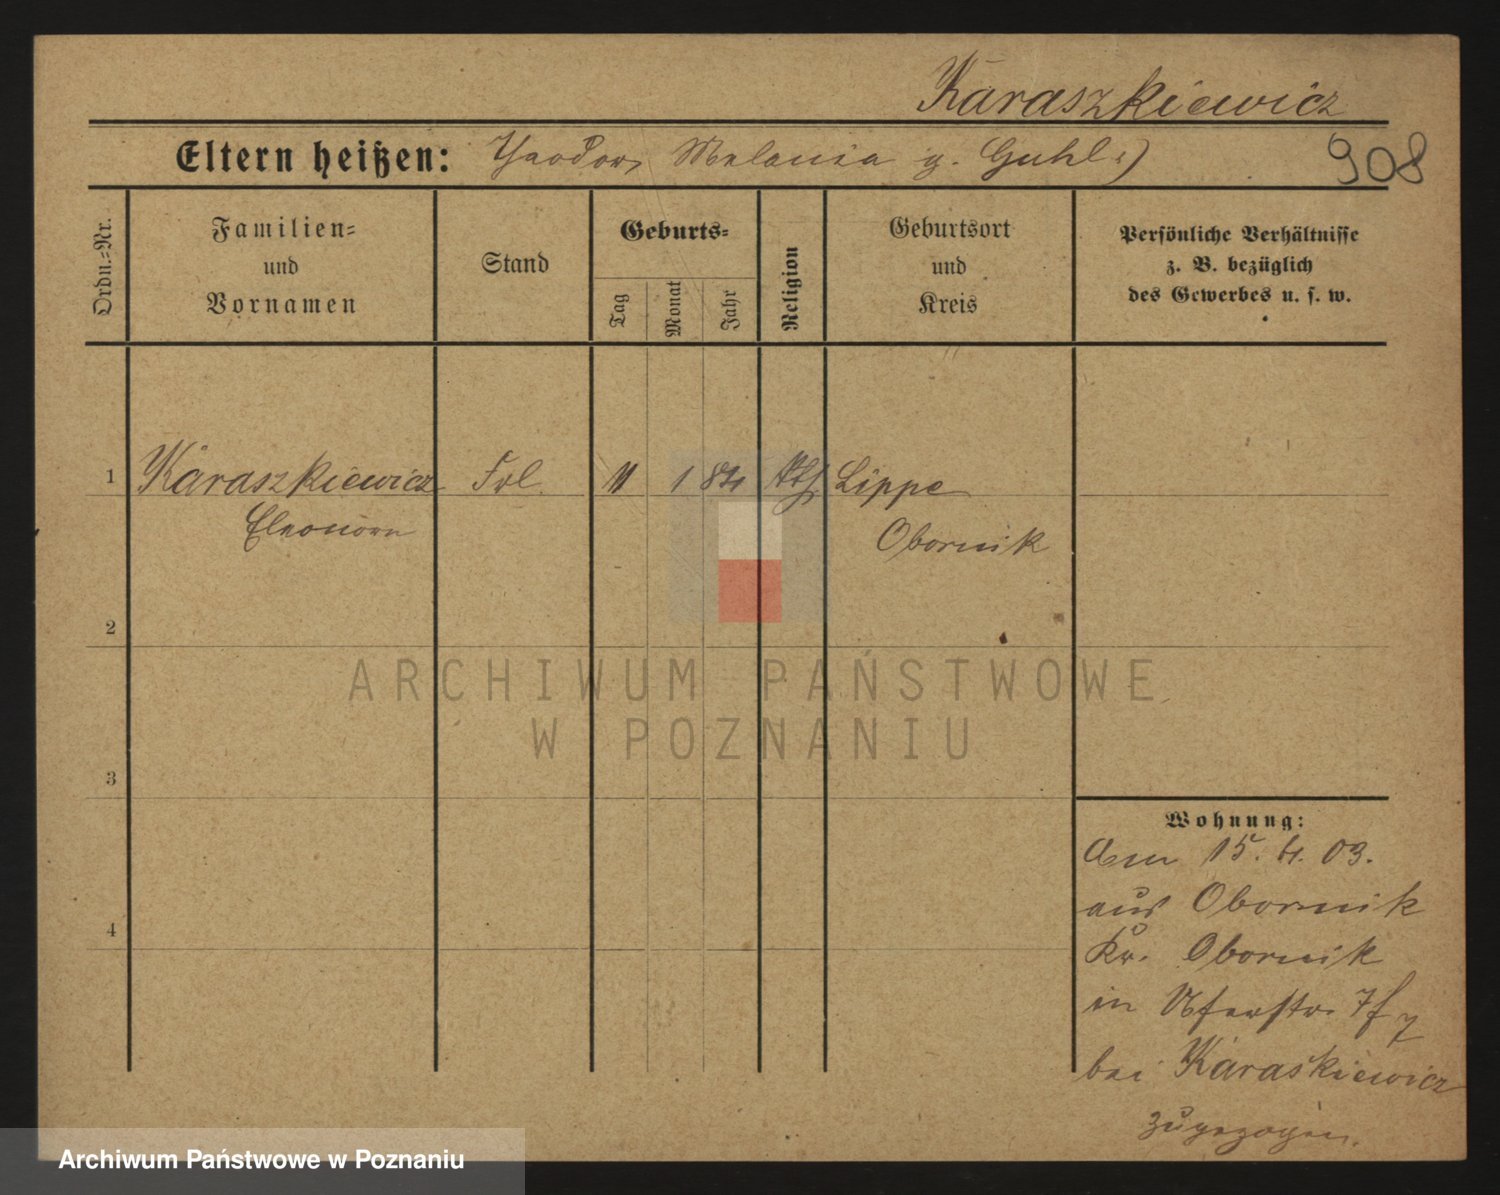 Karaszkiewicz
Eltern heißen: Theodor, Melania g. Guhl.)
908
Ordn.-Nr.
Familien-
und
Vornamen
Stand
Geburts-
Tag
Monat
Jahr
Religion
Geburtsort
und
Kreis
Persönliche Verhältnisse
z. B. bezüglich
des Gewerbes u. s. w.
1 Karaszkiewicz Frl. 11 1 84 Kth Lippe
Eleonora Obornik
2
3
4
Wohnung:
Am 15. 4. 03.
aus Obornik
Kr. Obornik
in Uferstr. 7
bei Karaśkiewicz
zugezogen.
ARCHIWUM PAŃSTWOWE
W POZNANIU
Archiwum Państwowe w Poznaniu